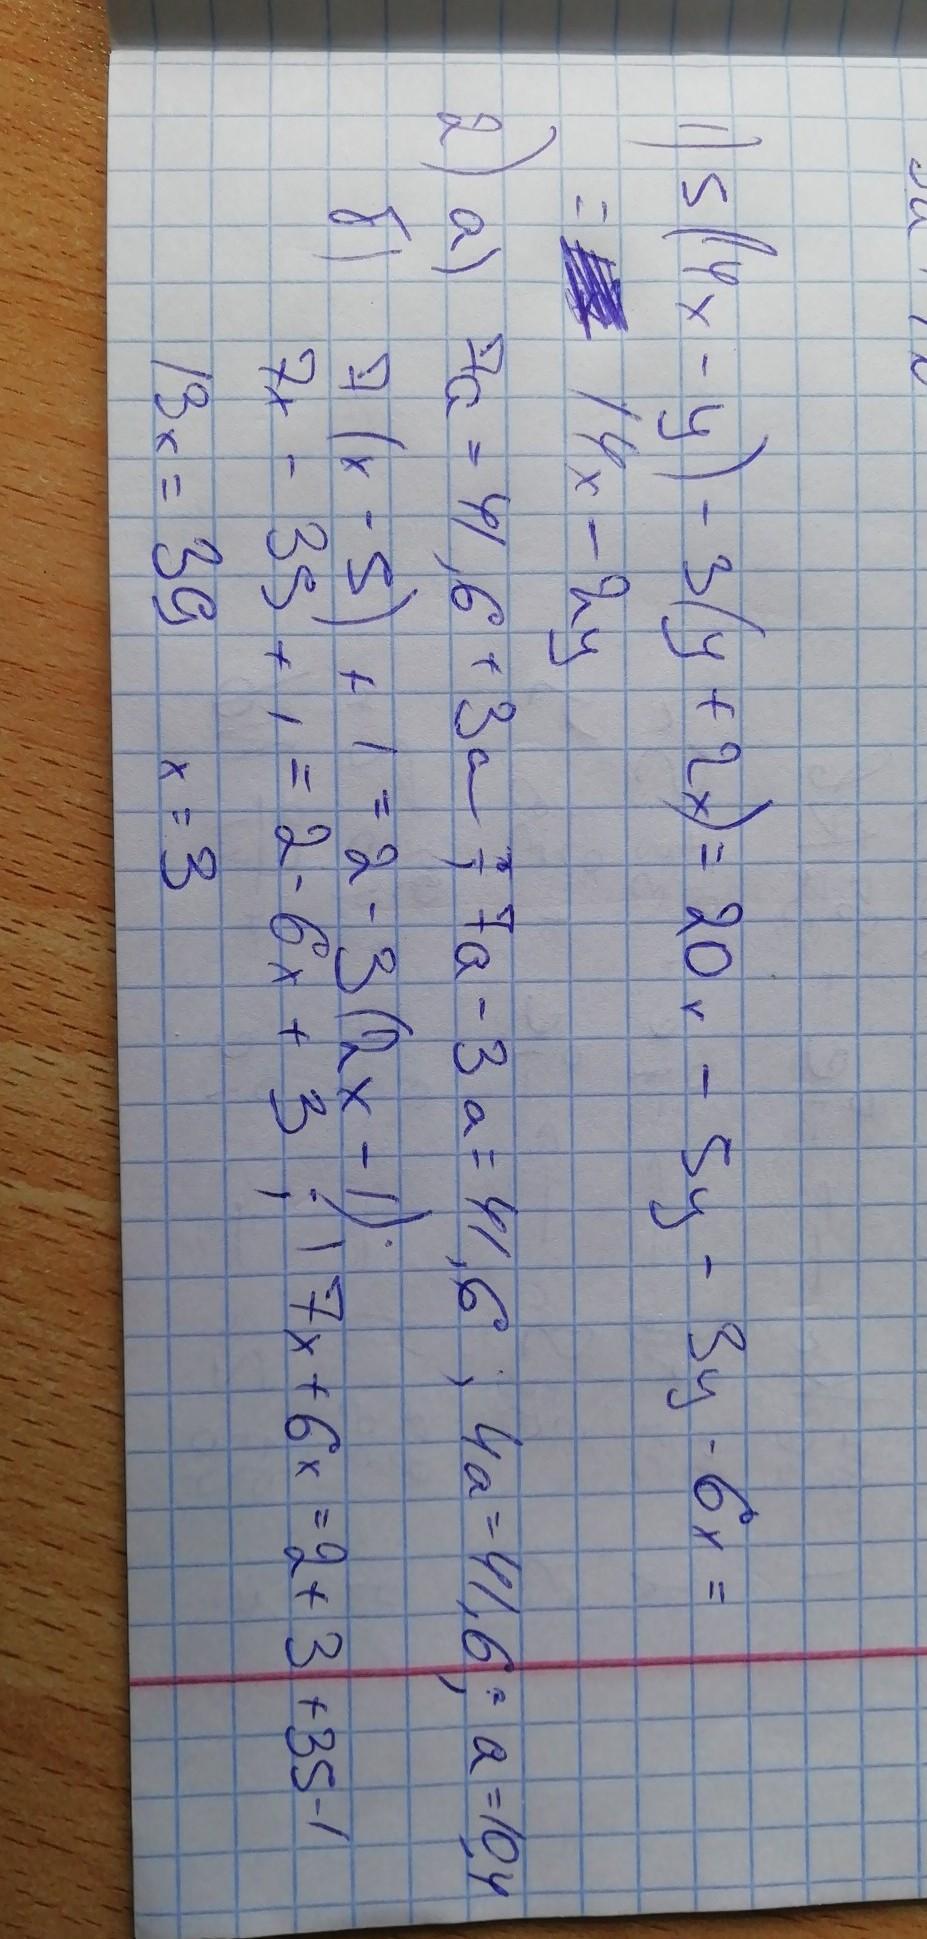 1) 5(4x - y) - 3(y + 2x) = 20x - 5y - 3y - 6x =
= 14x - 2y
2) а) 7a = 41,6 + 3a ; 7a - 3a = 41,6 ; 4a = 41,6 ; a = 10,4
б) 7(x - 5) + 1 = 2 - 3(2x - 1);
7x - 35 + 1 = 2 - 6x + 3 ; 7x + 6x = 2 + 3 + 35 - 1
13x = 39 x = 3